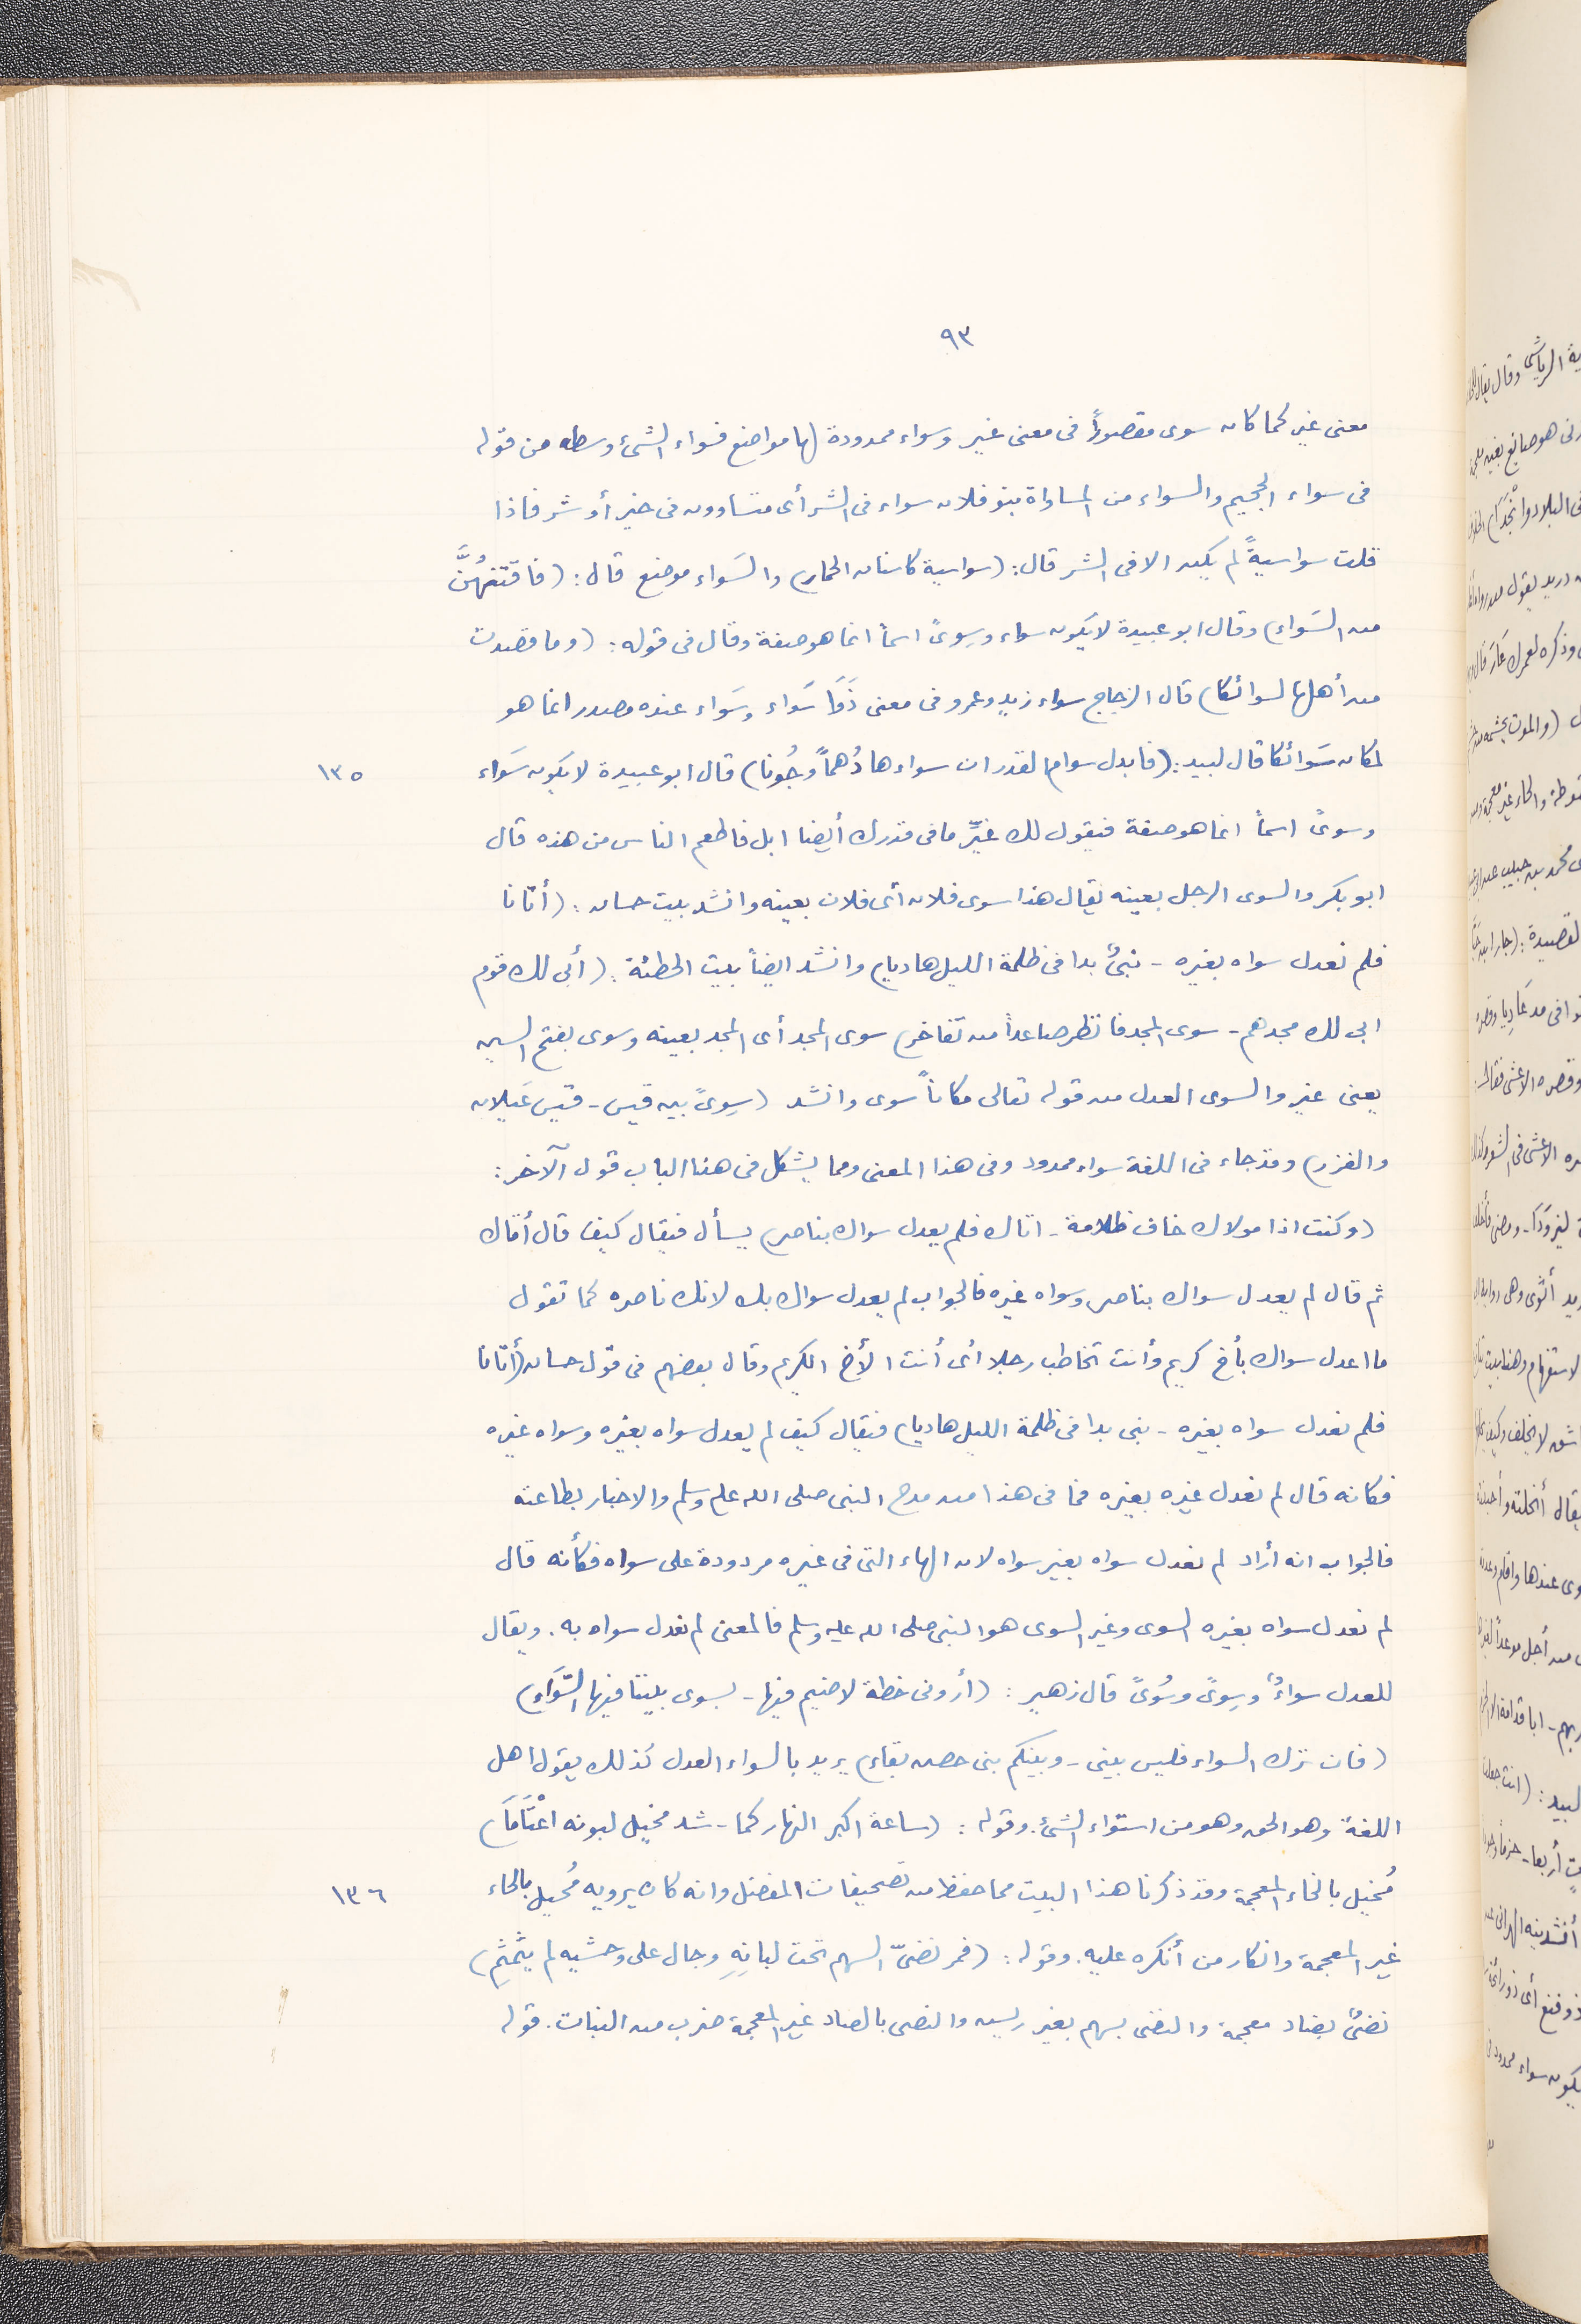 ٩٣
معنى غير كما كان سوى مقصوراً فى معنى غير وسواء ممدودة لها مواضع فسواء الشئ وسطه من قوله
فى سواء الجحيم والسواء من المساواة بنو فلان سواء فى الشر أى متساوون فى خير أو شر فاذا
قلت سواسيةً لم يكن الا فى الشر قال: (سواسية كاسنان الحمار) والسَواء موضع قال: (فافتنهُنَّ
من السَواءِ) وقال ابو عبيدة لا يكون سواء وسِوىً اسماً انما هو صفة وقال فى قوله: (وما قصدت
من أهلها لسوائكا) قال الزجاج سواء زيد وعمرو فى معنى ذَوَا سَواء وسَواء عنده مصدر انما هو
لمكان سَوائكا قال لبيد: (فابدل سوام القدر ان سواءها دُهماً وجُونا) قال ابو عبيدة لا يكون سَواء
١٣٥
وسوىً اسماً انما هو صفة فيقول لك غيِّر ما فى قدرك أيضا ابل فاطعم الناس من هذه قال
ابو بكر والسوى الرجل بعينه يقال هذا سوى فلان أى فلان بعينه وانشد بيت حسان: (أتانا
فلم نعدل سواه بغيره - نبىٌ بدا فى ظلمة الليل هاديا) وانشد ايضاً بيت الحطئة: (أبى لك قوم
ابى لك مجدهم - سوى المجد فانظر صاعداً من تفاخر) سوى المجد أى المجد بعينه وسوى بفتح السين
يعنى غير والسوى العدل من قوله تعالى مكاناً سوى وانشد (سِوىً بين قيس - قيس عَيلان
والفزر) وقد جاء فى اللغة سواء ممدود وفى هذا المعنى ومما يشكل فى هذا الباب قول الآخر:
(وكنت اذا مولاك خاف ظلامة - اتاك فلم يعدل سواك بناصر) يسأل فيقال كيف قال أتاك
ثم قال لم يعدل سواك بناصر وسواه غيره فالجواب لم يعدل سواك بك لانك ناصره كما تقول
ما اعدل سواك بأخ كريم وأنت تخاطب رجلا أى أنت الأخ الكريم وقال بعضهم فى قول حسان (أتانا
فلم نعدل سواه بغيره - نبى بدا فى ظلمة الليل هاديا) فيقال كيف لم يعدل سواه بغيره وسواه غيره
فكانه قال لم نعدل غيره بغيره فما فى هذا من مدح النبى صلى الله عليه وسلم والاخبار بطاعته
فالجواب انه أراد لم نعدل سواه بغير سواه لان الهاء التى فى غيره مردودة على سواه فكأنه قال
لم نعدل سواه بغيره السوى وغير السوى هو النبى صلى الله عليه وسلم فالمعنى لم نعدل سواه به. ويقال
للعدل سواءٌ وسِوىً وسُوىً قال زهير: (أرونى خطة لا ضيم فيها - يسوى بيننا فيها السَّوَاءِ)
(فان ترك السواء فليس بينى - وبينكم بنى حصن بقاء) يريد بالسواء العدل كذلك يقول اهل
اللغة وهو الحق وهو من استواء الشئ. وقوله: (ساعة اكبر النهار كما - شد مخيل لبونه اعْتَامَا)
مُخيل بالخاء المعجمة وقد ذكرنا هذا البيت مما حفظ من تصحيفات المفضل وانه كان يرويه مُحيل بالحاء
١٣٦
غير المعجمة وانكار من أنكره عليه. وقوله: (فمر نضىّ السهم تحت لبانِهِ وجال على وحشيه لم يثمثم)
نضىٌ بضاد معجمة والنضى سهم بغير ريش والنصى بالصاد غير المعجمة ضرب من النبات. قوله